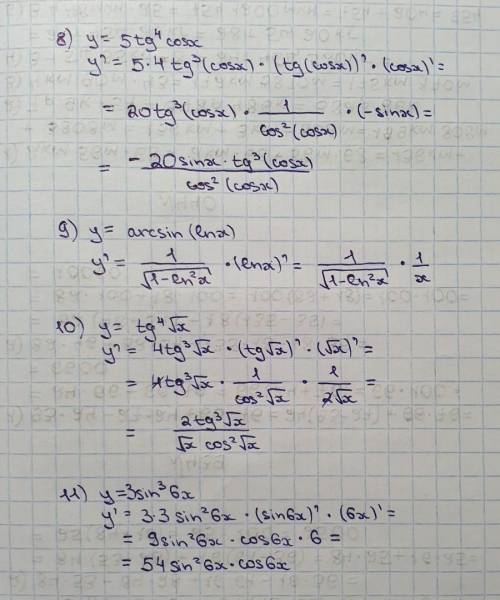 8) y = 5tg⁴cosx
y' = 5·4tg³(cosx)·(tg(cosx))'·(cosx)' =
= 20tg³(cosx)· 1/cos²(cosx) ·(-sinx) =
= -20sinx·tg³(cosx)/cos²(cosx)
9) y = arcsin(lnx)
y' = 1/√(1-ln²x) ·(lnx)' = 1/√(1-ln²x) · 1/x
10) y = tg⁴√x
y' = 4tg³√x·(tg√x)'·(√x)' =
= 4tg³√x· 1/cos²√x · 1/2√x =
= 2tg³√x/√x cos²√x
11) y=3sin³6x
y' = 3·3sin²6x·(sin6x)'·(6x)' =
= 9sin²6x·cos6x·6 =
= 54sin²6x·cos6x